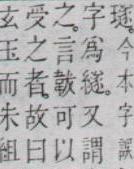 璲。今本字誤
字爲繸。又謂
之。言載可以
受之者。故曰
玄玉而朱組